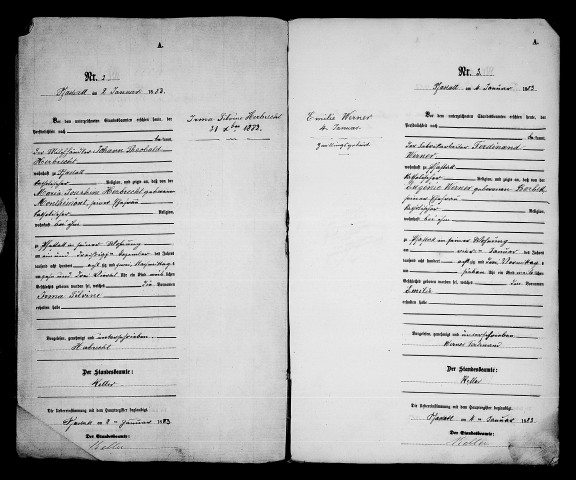 A.
Nr. 2
Pfastatt am 2 Januar 1883.
Vor dem unterzeichneten Standesbeamten erschien heute, der
Persönlichkeit nach
bekannt,
der Milchhändler Johann Theobald
Herbrecht
wohnhaft zu Pfastatt
katholischer Religion, und zeigte an, daß von der
Maria Josephine Herbrecht geborenen
seiner Ehefrau
katholischer Religion,
wohnhaft bei ihm
zu Pfastatt in seiner Wohnung
am ein und dreißigsten Dezember des Jahres
tausend acht hundert achtzig und zwei Nachmittags
um Uhr ein Kind weiblichen
Geschlechts geboren worden sei, welches die Vornamen
Irma Silvine
erhalten habe
Vorgelesen, genehmigt und unterschrieben.
Herbrecht
Der Standesbeamte:
Keller
Die Uebereinstimmung mit dem Hauptregister beglaubigt.
Pfastatt am 2ten Januar 1883
Der Standesbeamte:
Keller
Irma Silvine Herbrecht
31 Xbre 1882.
Emilie Werner
4. Januar.
Zwillingsgeburt
A.
Nr. 3.
Pfastatt am 4 Januar 1883.
Vor dem unterzeichneten Standesbeamten erschien heute, der
Persönlichkeit nach
bekannt,
der Ferdinand
Werner
wohnhaft zu Pfastatt
katholischer Religion, und zeigte an, daß von der
Eugénie Werner geborenen
seiner Ehefrau
katholischer Religion,
wohnhaft bei ihm
zu Pfastatt in seiner Wohnung
am vierten Januar des Jahres
tausend acht hundert achtzig und drei Vormittags
um sieben Uhr ein Kind weiblichen
Geschlechts geboren worden sei, welches die Vornamen
Emilie
erhalten habe
Vorgelesen, genehmigt und unterschrieben
Werner Ferdinand
Der Standesbeamte:
Keller
Die Uebereinstimmung mit dem Hauptregister beglaubigt.
Pfastatt am 4ten Januar 1883
Der Standesbeamte:
Keller